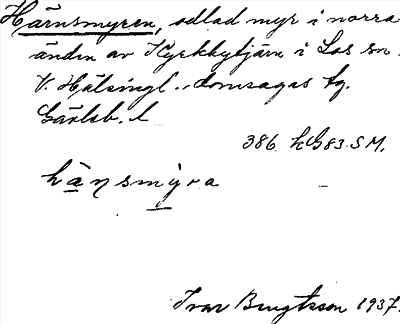 Härnsmyren, odlad myr i norra
änden av Kyrkbytjärn i Los sn.
V. Hälsingl. domsagas tg.
Gävleb. l
386 hG83 S M.
hänsmyra
Ivar Bengtsson 1937.